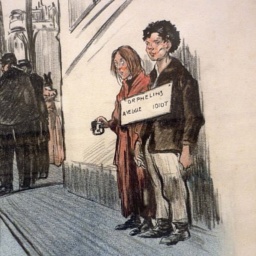 ORPHELINS
AVEUGLE IDIOT